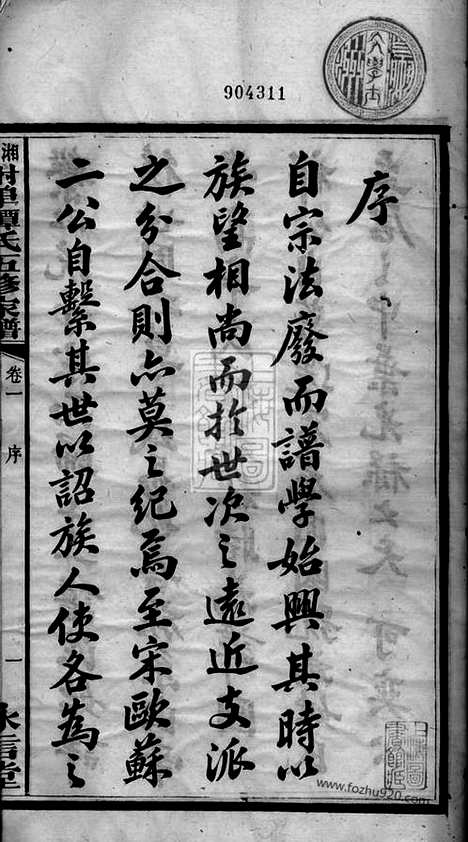 904311
序
自宗法廢而譜學始興其時以
族望相尚而於世次之遠近支派
之分合則亦莫之紀焉至宋歐蘇
二公自繫其世以詔族人使各為之
湘
譚氏五修家譜
卷一
序
一
永言堂
www.fozhu920.com